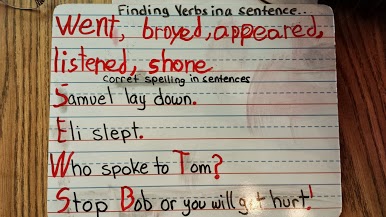 Finding Verbs in a sentence...
Went, broyed, appeared,
listened, shone
Corret spelling in sentences
Samuel lay down.
Eli slept.
Who spoke to Tom?
Stop Bob or you will get hurt!